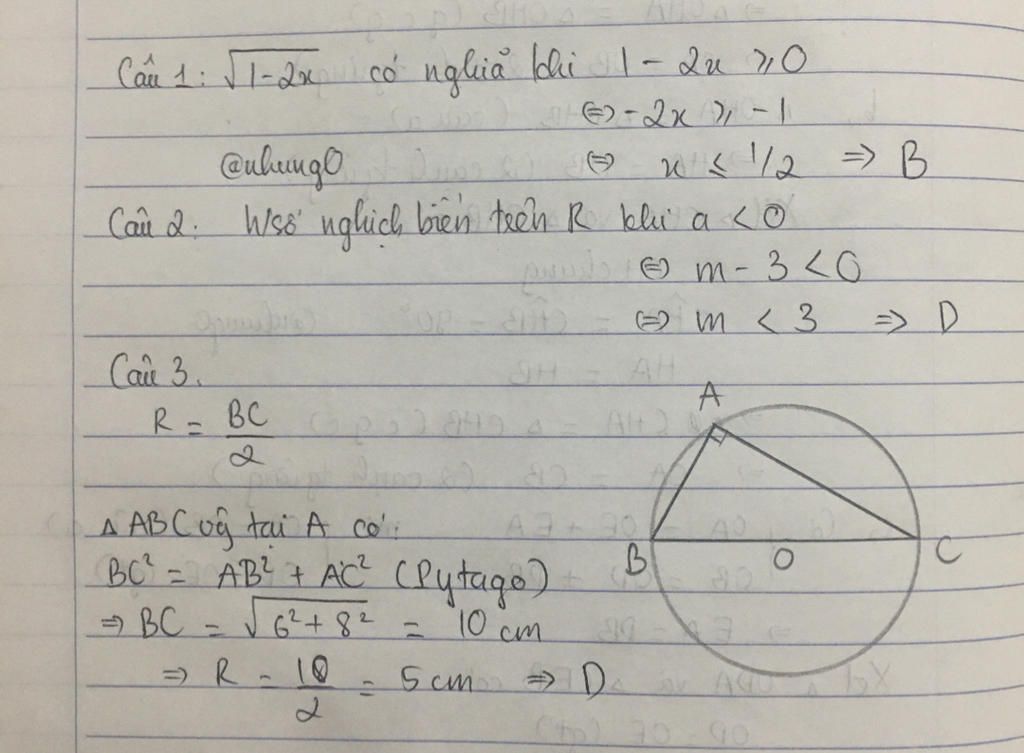 Câu 1: √1-2x có nghĩa khi 1 - 2x ⩾ 0
⇔ -2x ⩾ -1
@nhung0 ⇔ x ≤ 1/2 ⇒ B
Câu 2: Hsố nghịch biến trên R khi a < 0
⇔ m - 3 < 0
⇔ m < 3 ⇒ D
Câu 3.
R = BC/2
A
B
O
C
△ ABC vg tại A có:
BC² = AB² + AC² (Pytago)
⇒ BC = √6² + 8² = 10 cm
⇒ R = 10/2 = 5 cm ⇒ D